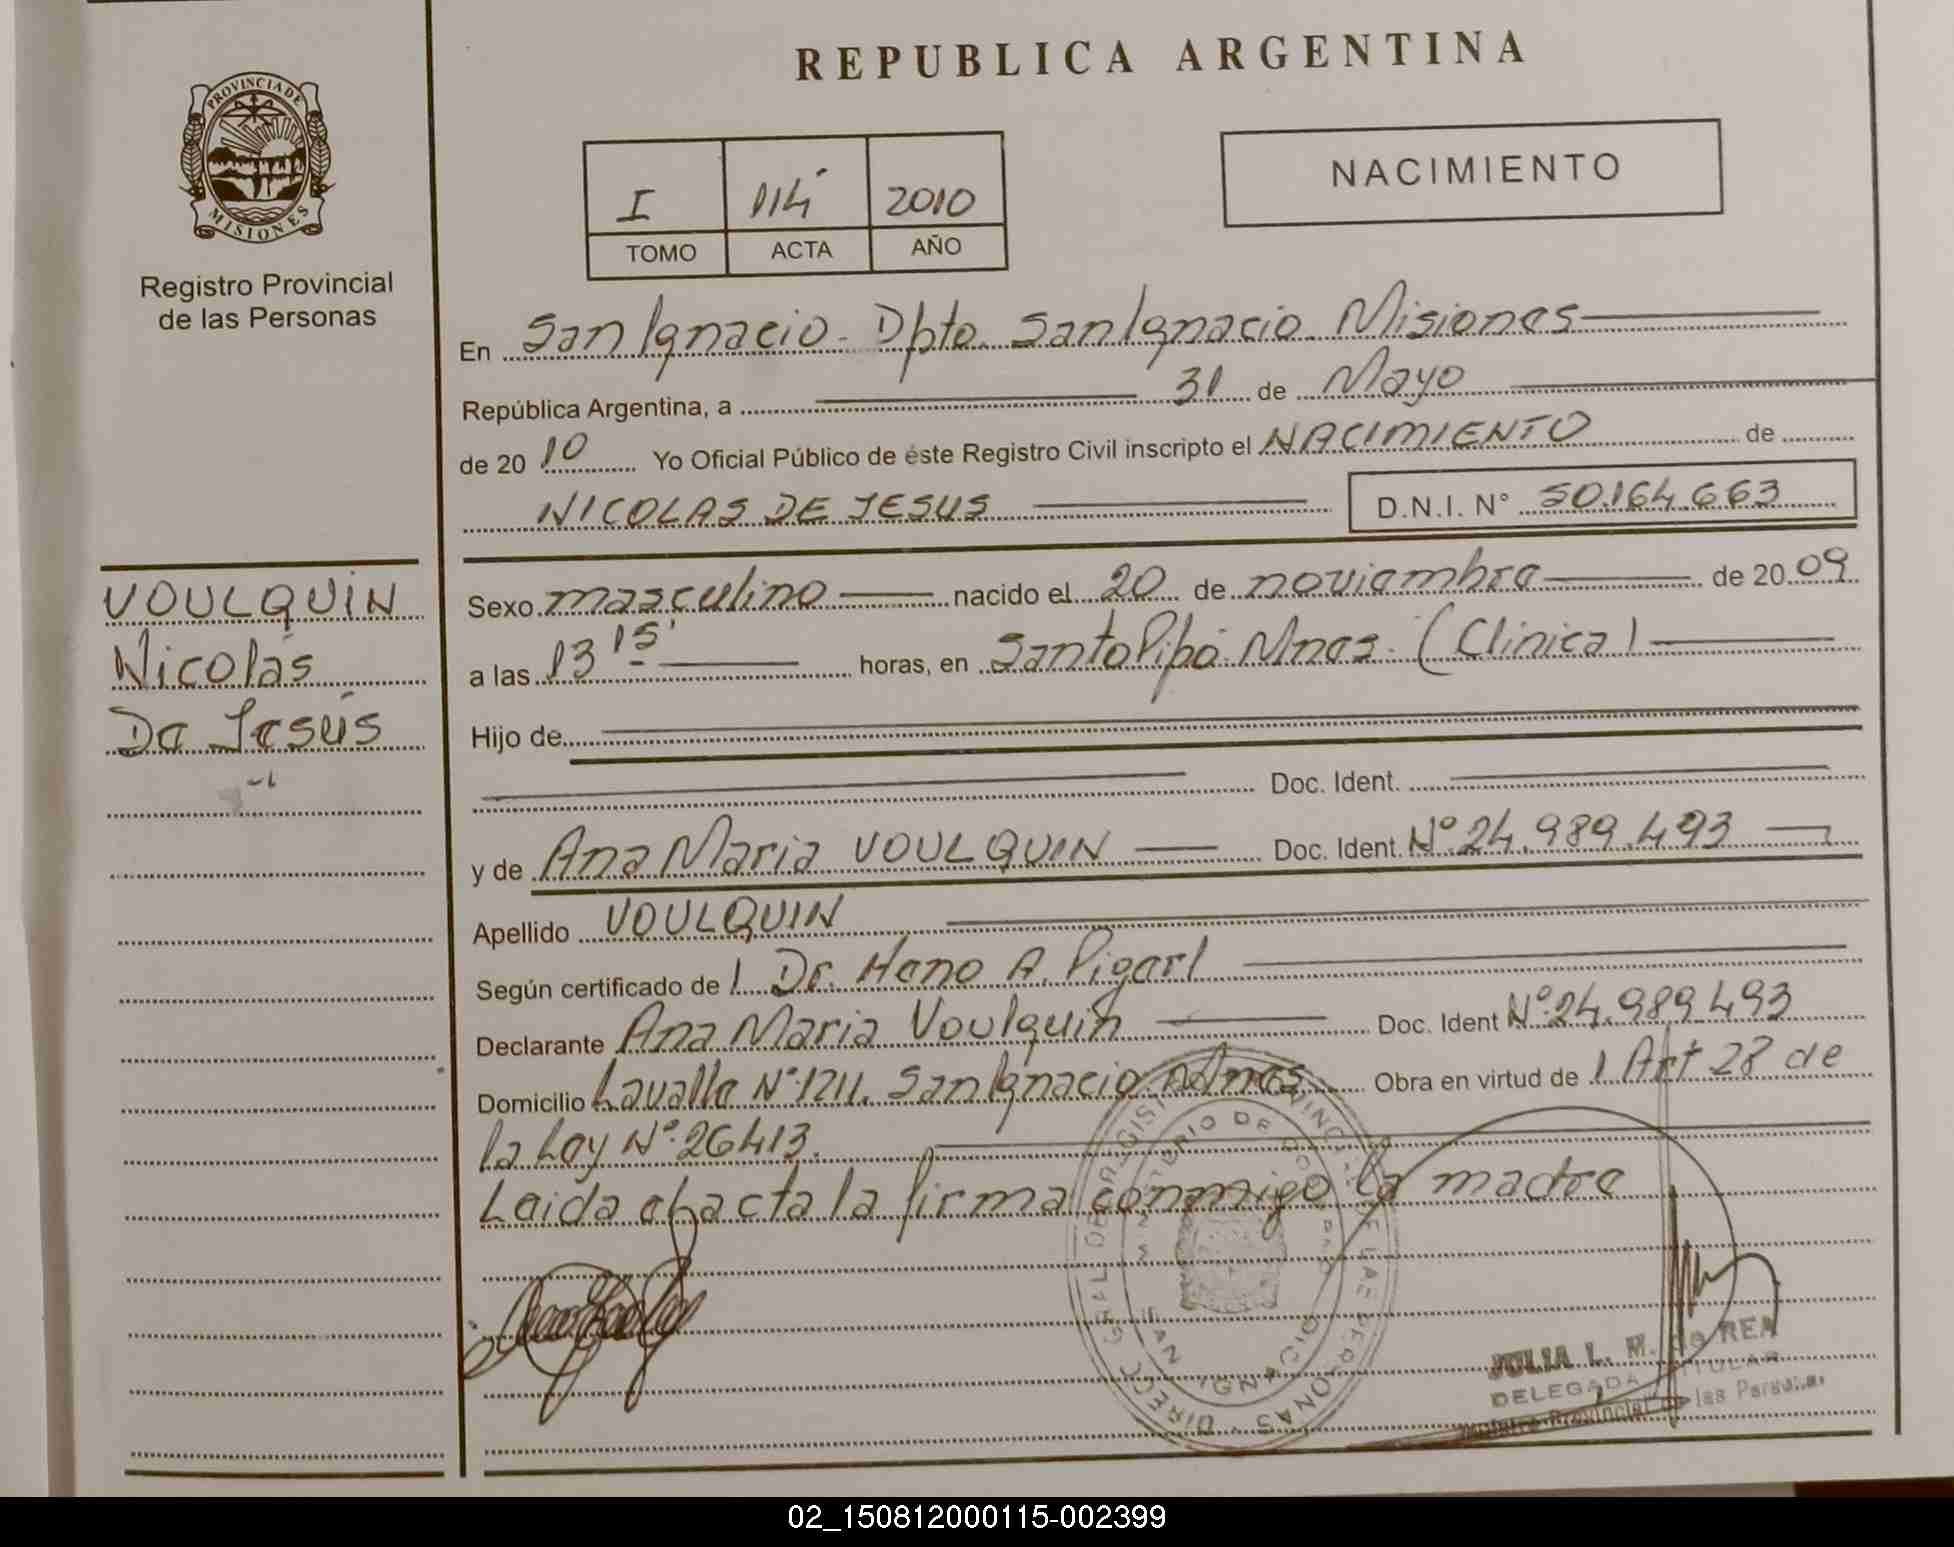 REPUBLICA ARGENTINA
PROVINCIA DE
MISIONES
Registro Provincial
de las Personas
I 114 2010
TOMO ACTA AÑO
NACIMIENTO
En San Ignacio - Dpto. San Ignacio Misiones
República Argentina, a 31 de Mayo
de 2010 Yo Oficial Público de éste Registro Civil inscripto el NACIMIENTO de
NICOLAS DE JESUS D.N.I. N° 50.164.663
VOULQUIN
Nicolás
De Jesús
Sexo masculino nacido el 20 de noviembre de 2009
a las 13 15' horas, en Santo Pipó. Mnes. (Clinica)
Hijo de
Doc. Ident.
y de Ana Maria VOULQUIN Doc. Ident. N° 24.989.493
Apellido VOULQUIN
Según certificado de l Dr. A.
Declarante Ana Maria Voulquin Doc. Ident N° 24.989.493
Domicilio Lavalle N° 1211. San Ignacio Mnes Obra en virtud de l Art 28 de
la Ley N° 26413.
Leida el acta la firma conmigo la madre
JULIA L. M.
DELEGADA TITULAR
Registro Provincial de las Personas
02_150812000115-002399